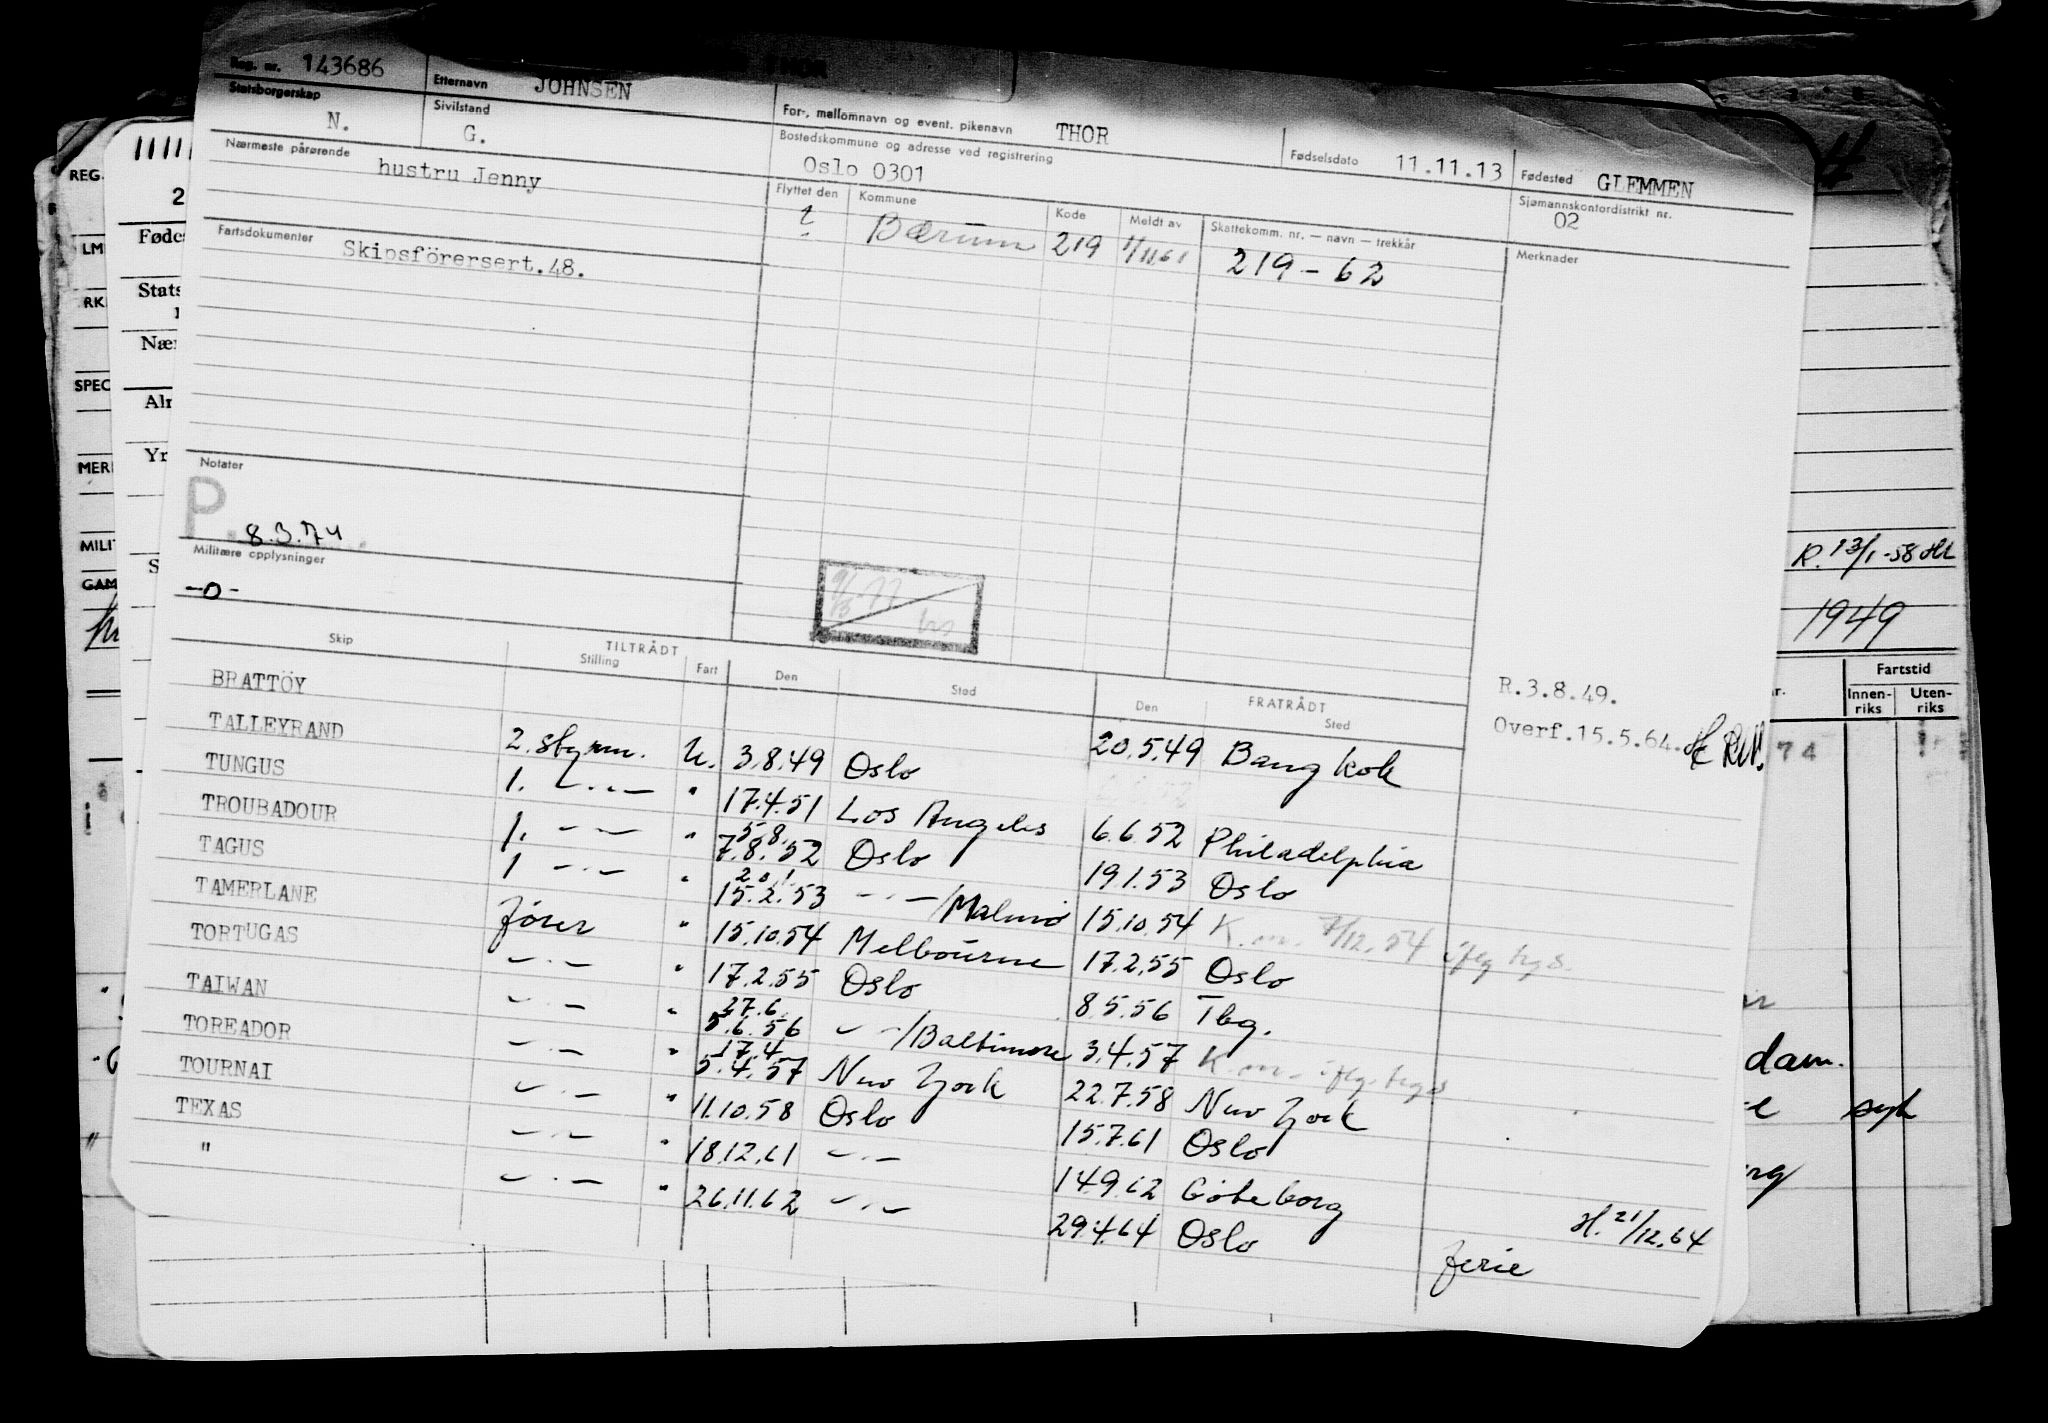 Reg. nr. 143686 Etternavn JOHNSEN For-, mellomnavn og event. pikenavn THOR Fødselsdato 11.11.13 Fødested GLEMMEN
Statsborgerskap N. Sivilstand G. Bostedskommune og adresse ved registrering Oslo 0301 Sjømannskontordistrikt nr. 02
Nærmeste pårørende hustru Jenny
Flyttet den Kommune Kode Meldt av Skattekomm. nr. — navn — trekkår Merknader
? Bærum 219 219 - 62
Fartsdokumenter Skipsförersert.48.
Notater
P. 8.3.74
Militære opplysninger
-o-
R. 13/1-58
1949
Fartstid
Innenriks Utenriks
R.3.8.49.
Overf.15.5.64.
TILTRÅDT FRATRÅDT
Skip Stilling Fart Den Sted Den Sted
BRATTÖY 20.5.49 Bangkok
TALLEYRAND 2. styrm. U. 3.8.49 Oslo
TUNGUS 1. -"- " 17.4.51 Los Angeles 6.6.52 Philadelphia
TROUBADOUR 1. -"- " 5.8. 7.8.52 Oslo 19.1.53 Oslo
TAGUS 1 -"- " 20.1. 15.2.53 -"-/Malmö 15.10.54 K.m. 7/12.54
TAMERLANE fører " 15.10.54 Melbourne 17.2.55 Oslo
TORTUGAS -"- " 17.2.55 Oslo 8.5.56 Tbg.
TAIWAN -"- " 27.6. 5.6.56 -"-/Baltimore 3.4.57 K.m.
TOREADOR -"- " 17.4 5.4.57 New York 22.7.58 New York
TOURNAI -"- " 11.10.58 Oslo 15.7.61 Oslo
TEXAS -"- " 18.12.61 -"- 14.9.62 Göteborg
" -"- " 26.11.62 -"- 29.4.64 Oslo ferie
21/12.64
REG.
LM
RK
SPEC
MER
MILI
GAM
Føde
Stats
Nær
Yr
74
dam.
syk